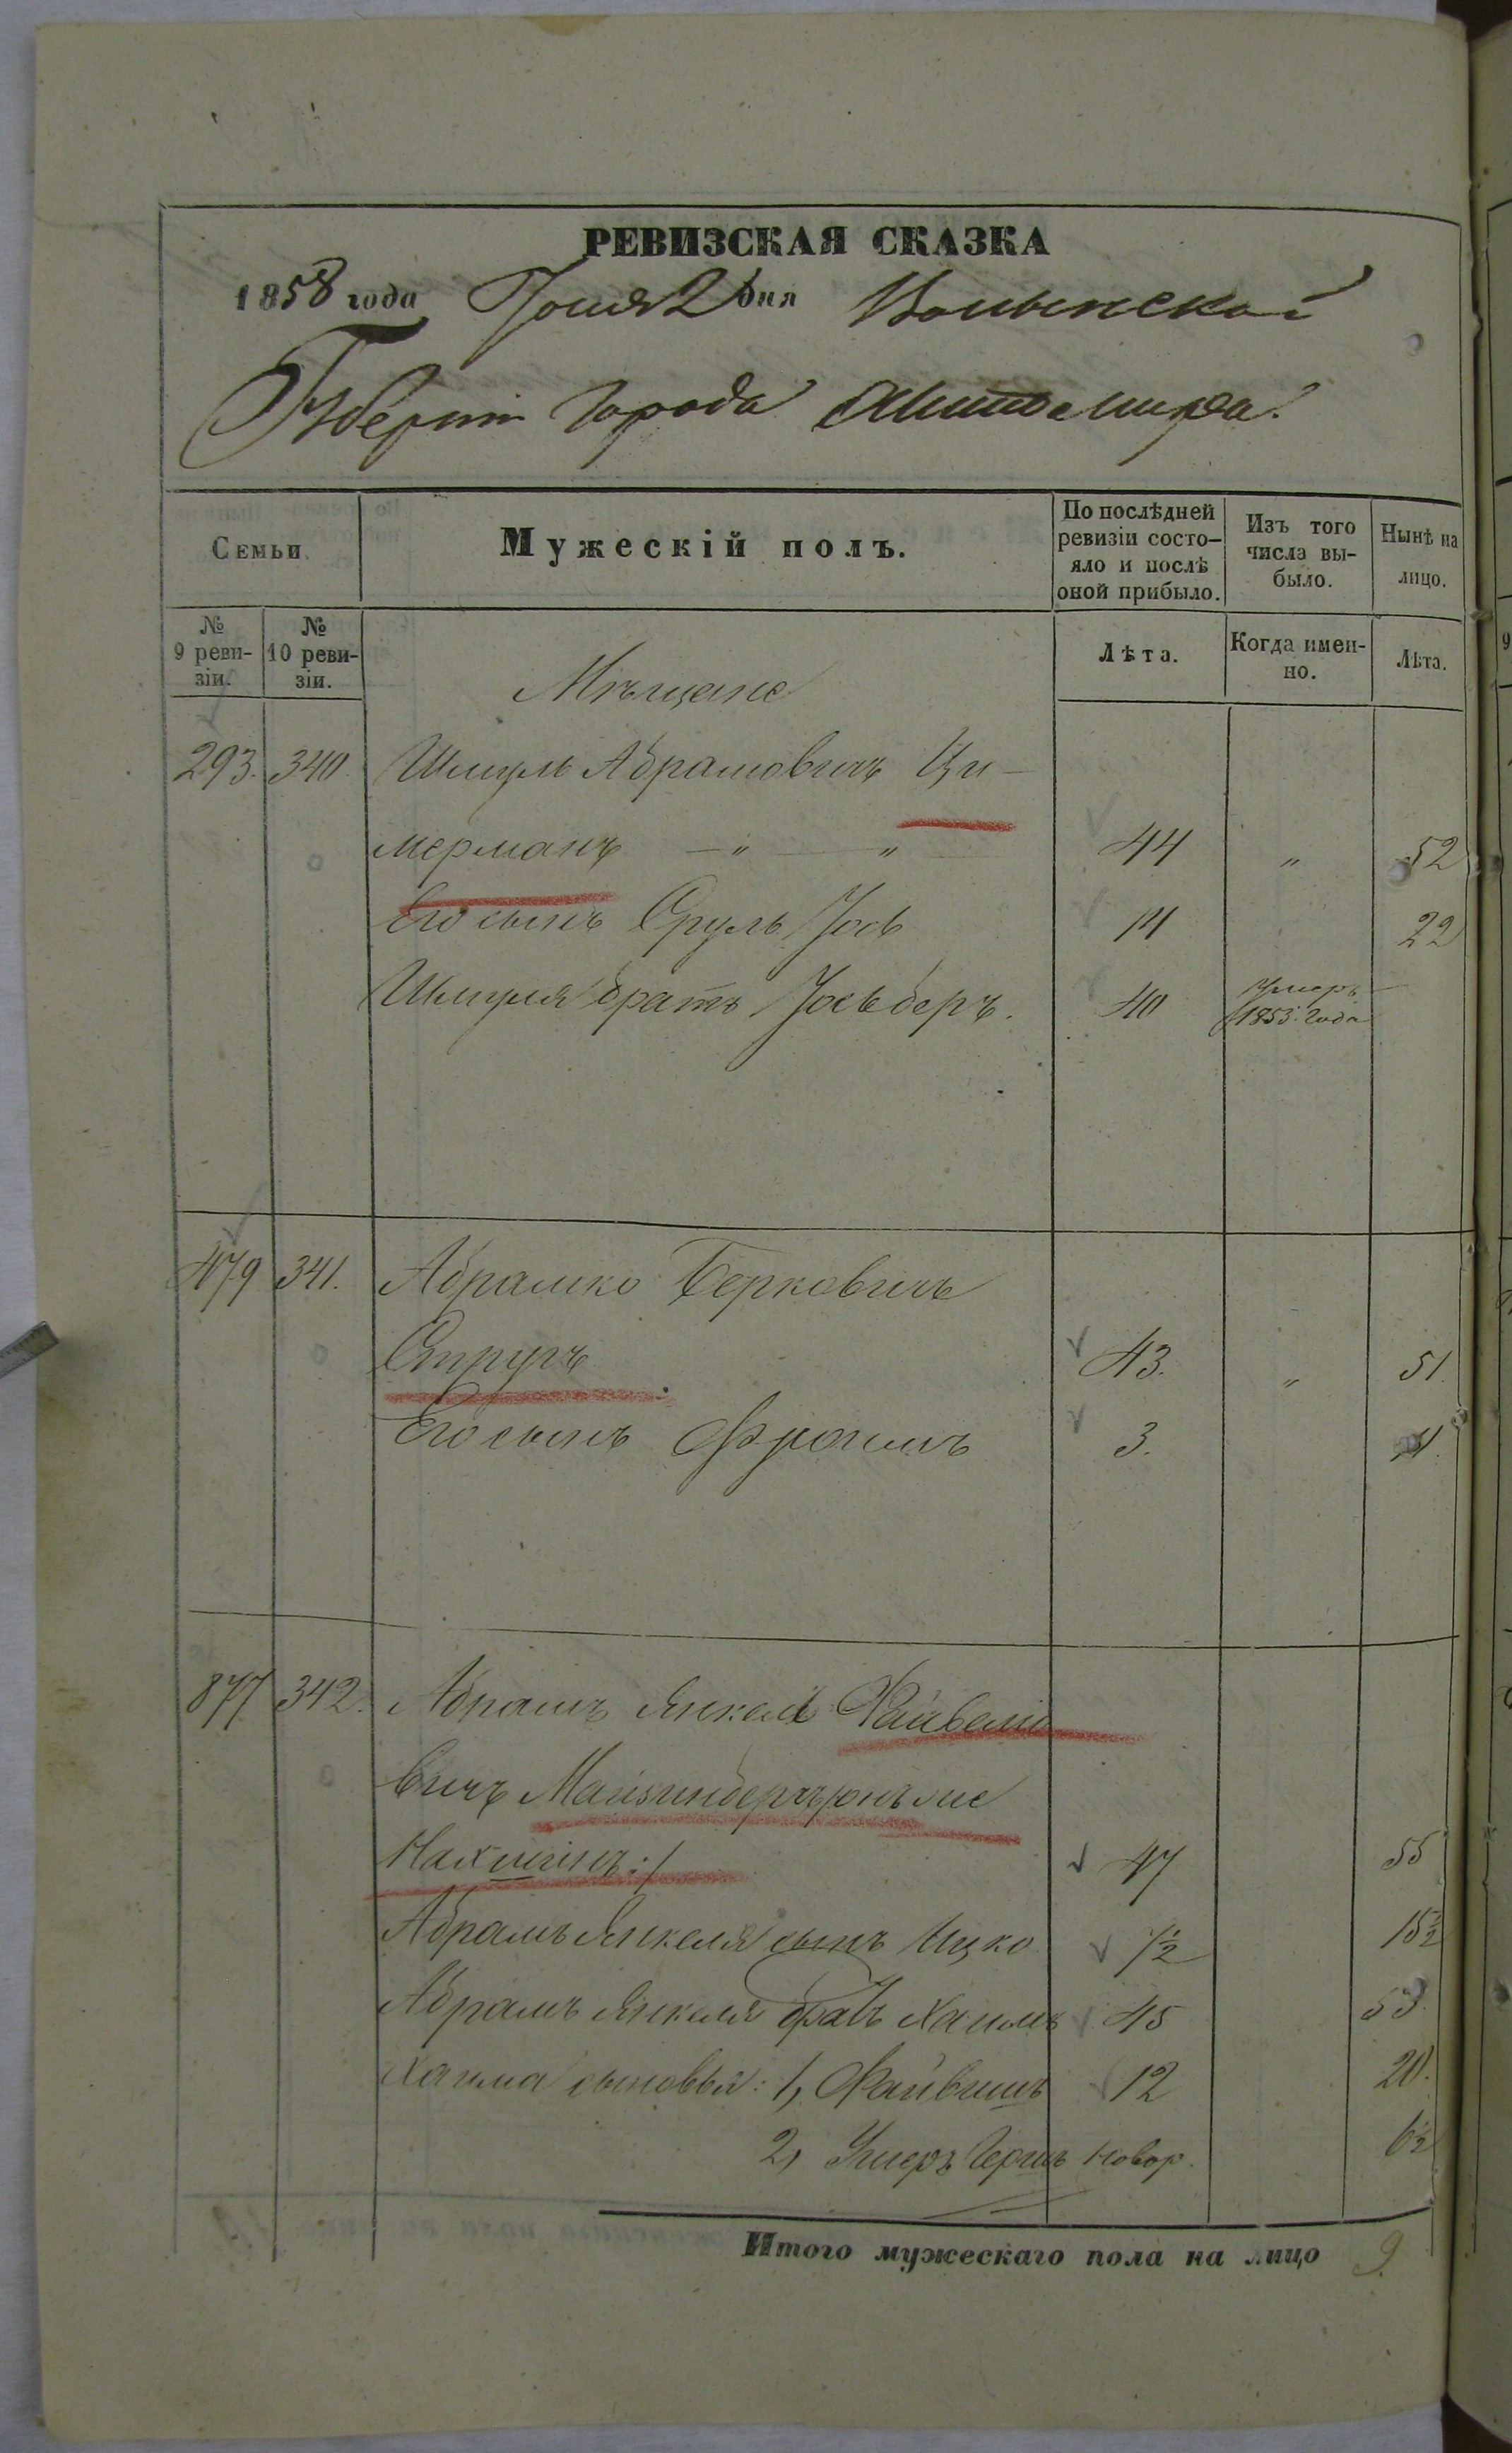 РЕВИЗСКАЯ СКАЗКА
1858 года Іюня 2 дня Волынской
Губерніи города Житомира.
Семьи.
Мужескій полъ.
По послѣдней ревизіи состояло и послѣ оной прибыло.
Изъ того числа выбыло.
Нынѣ на лицо.
№ 9 ревизіи.
№ 10 ревизіи.
Лѣта.
Когда именно.
Лѣта.
Мѣщане
293. 340. Шмуль Абрамовичъ Ци-
мерманъ — " — " 44 " 52
Его сынъ Сруль Іось 14 22
Шмуля братъ Іосьберъ. 40 Умеръ 1853 года
479 341. Абрамко Берковичъ
Стругъ 43. " 51.
Его сынъ Фроимъ 3. 11.
877 342. Абрамъ Янкель Файвелю
вичъ Майзинбергъ
Нахманъ:/ 47 55
Абрамъ Янкеля сынъ Ицко 7½ 15½
Абрамъ Янкеля братъ Хаимъ 45 53.
Хаима сыновья: 1, Файвишъ 12 20.
2, Умеръ Гершъ новор. 6½
Итого мужескаго пола на лицо 9.